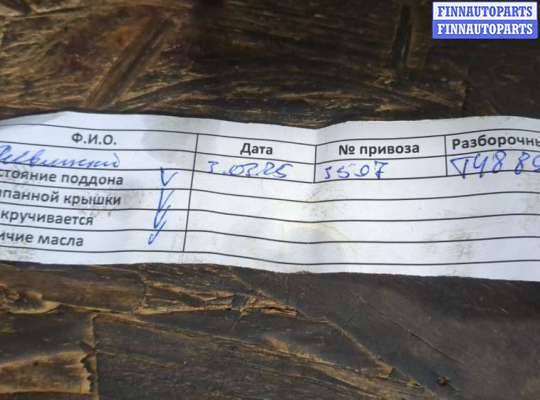 FINNAUTOPARTS
FINNAUTOPARTS
Ф.И.О. Дата № привоза Разборочны
3.03.25 3507 T488
стояние поддона V
апанной крышки V
кручивается V
ичие масла V